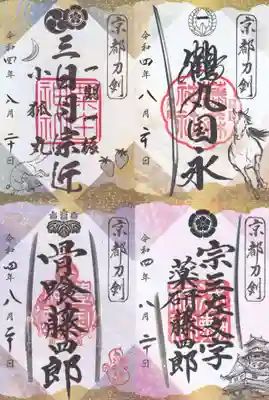 京都刀剣
三日月宗近
小狐丸
令和四年 八月二十日
京都刀剣
一
鶴丸国永
令和四年 八月二十日
京都刀剣
骨喰藤四郎
令和四年 八月二十日
京都刀剣
宗三左文字
薬研藤四郎
令和四年 八月二十日